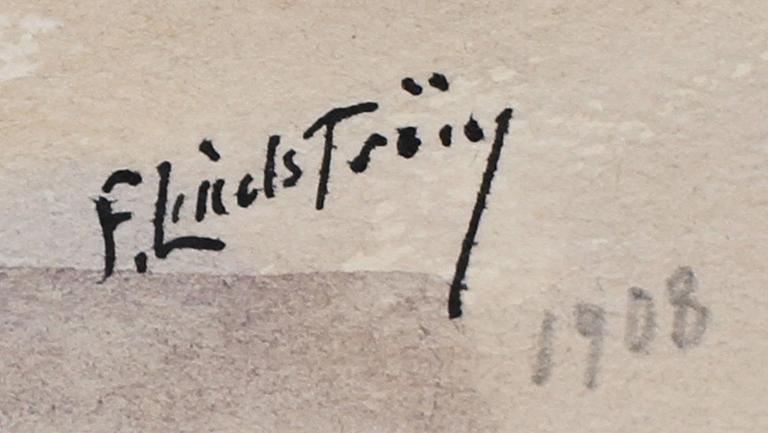 F. Lindström
1908